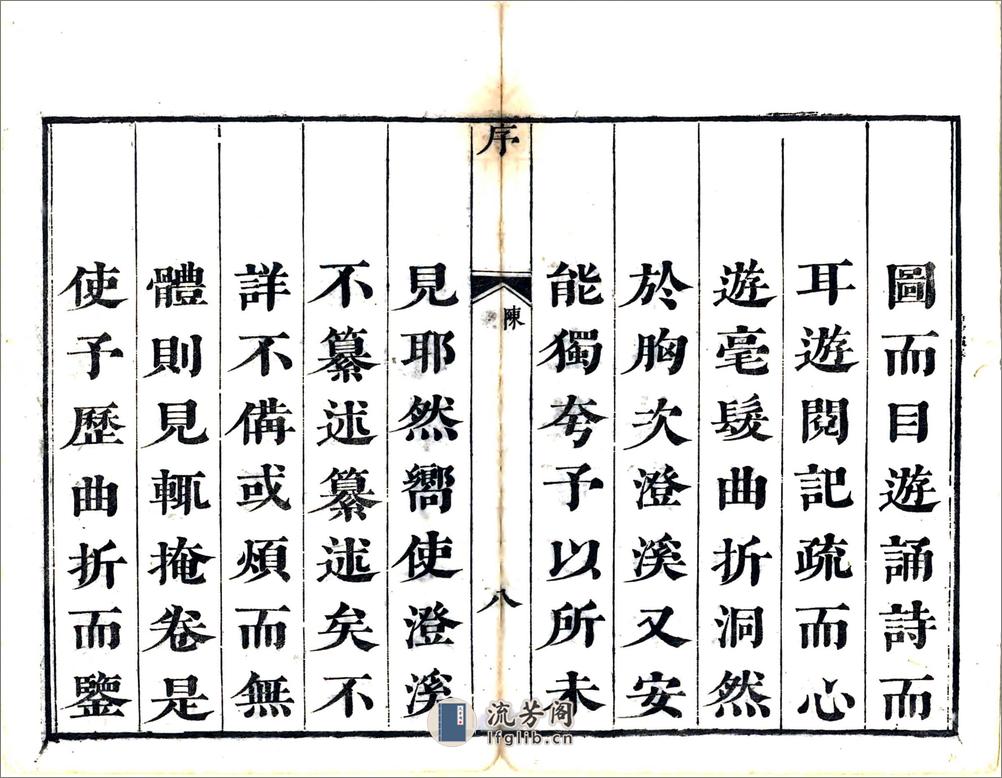 圖而目遊誦詩而
耳遊閱記疏而心
遊毫髮曲折洞然
於胸次澄溪又安
能獨夸予以所未
序
陳
八
見耶然嚮使澄溪
不纂述纂述矣不
詳不備或煩而無
體則見輒掩卷是
使予歷曲折而鑒
流芳阁
lfglib.cn